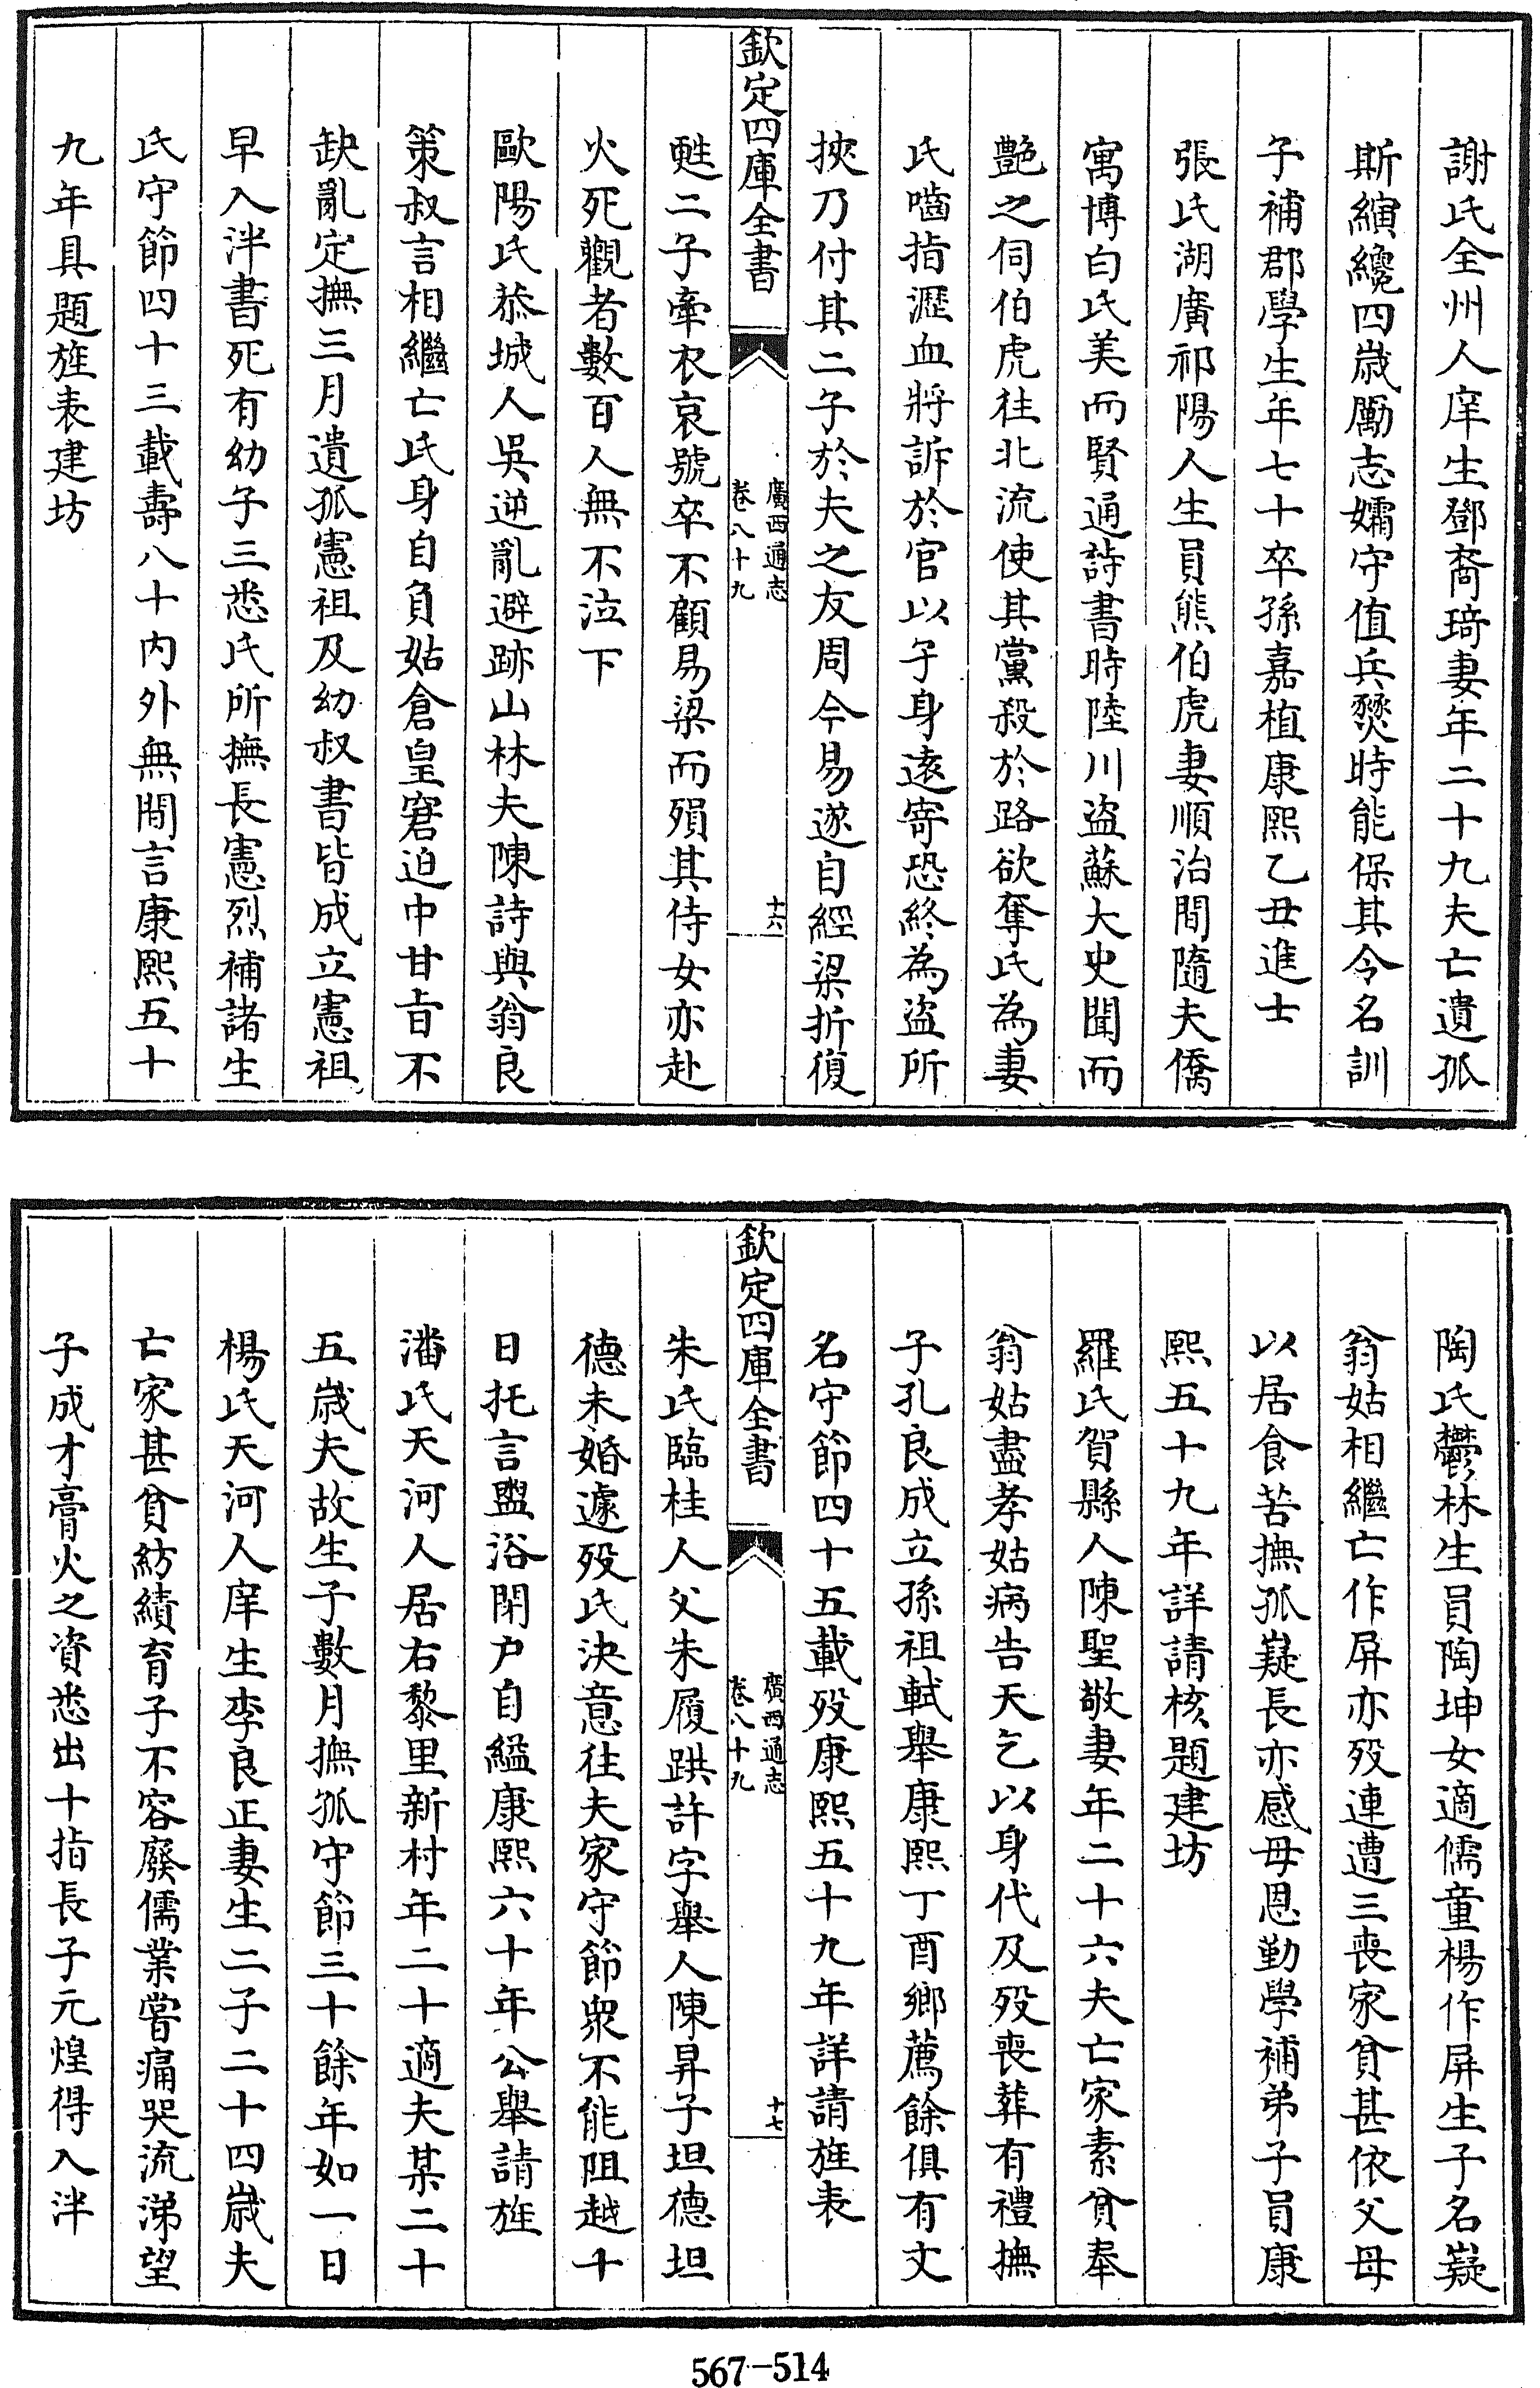 謝氏全州人庠生鄧裔琦妻年二十九夫亡遺孤
斯縯纔四歳勵志孀守值兵燹時能保其令名訓
子補郡學生年七十卒孫嘉植康熙乙丑進士
張氏湖廣祁陽人生員熊伯虎妻順治間隨夫僑
寓博白氏美而賢通詩書時陸川盜蘇大史聞而
艷之伺伯虎往北流使其黨殺於路欲奪氏為妻
氏嚙指瀝血將訴於官以子身遠寄恐終為盜所
挾乃付其二子於夫之友周今易遂自經梁折復
甦二子牽衣哀號卒不顧易梁而殞其侍女亦赴
火死觀者數百人無不泣下
歐陽氏恭城人吳逆亂避跡山林夫陳詩與翁良
策叔言相繼亡氏身自負姑倉皇窘迫中甘旨不
缺亂定撫三月遺孤憲祖及幼叔書皆成立憲祖
早入泮書死有幼子三悉氏所撫長憲烈補諸生
氏守節四十三載壽八十內外無間言康熙五十
九年具題旌表建坊
欽定四庫全書
廣西通志
卷八十九
十六
陶氏鬱林生員陶坤女適儒童楊作屏生子名嶷
翁姑相繼亡作屏亦歿連遭三喪家貧甚依父母
以居食苦撫孤嶷長亦感母恩勤學補弟子員康
熙五十九年詳請核題建坊
羅氏賀縣人陳聖敬妻年二十六夫亡家素貧奉
翁姑盡孝姑病告天乞以身代及歿喪葬有禮撫
子孔良成立孫祖軾舉康熙丁酉鄉薦餘俱有文
名守節四十五載歿康熙五十九年詳請旌表
朱氏臨桂人父朱履𨁝許字舉人陳昇子坦德坦
德未婚遽歿氏決意往夫家守節衆不能阻越十
日托言盥浴閉户自縊康熙六十年公舉請旌
潘氏天河人居右黎里新村年二十適夫某二十
五歳夫故生子數月撫孤守節三十餘年如一日
楊氏天河人庠生李良正妻生二子二十四歳夫
亡家甚貧紡績育子不容廢儒業嘗痛哭流涕望
子成才膏火之資悉出十指長子元煌得入泮
欽定四庫全書
廣西通志
卷八十九
十七
567-514